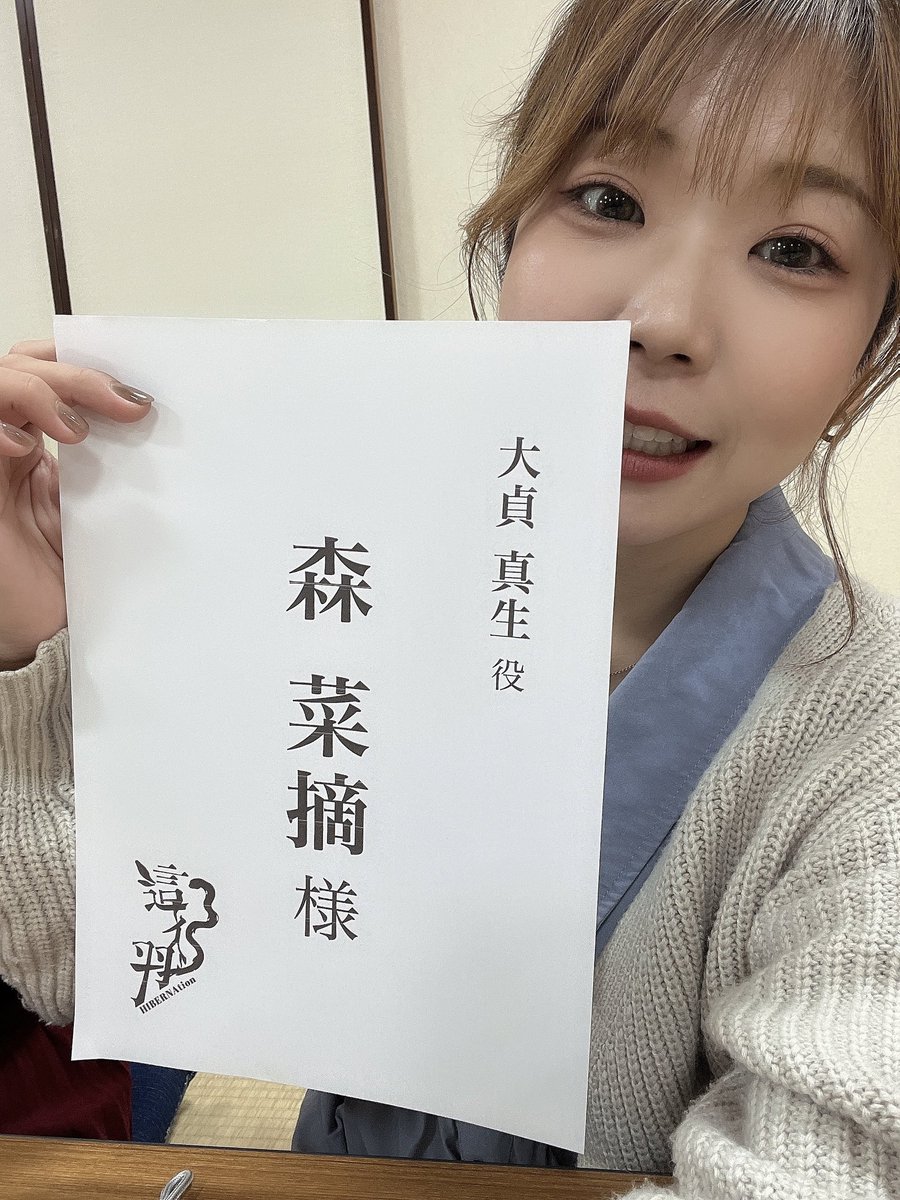 大貞 真生 役
森 菜摘 様
HIBERNAtion